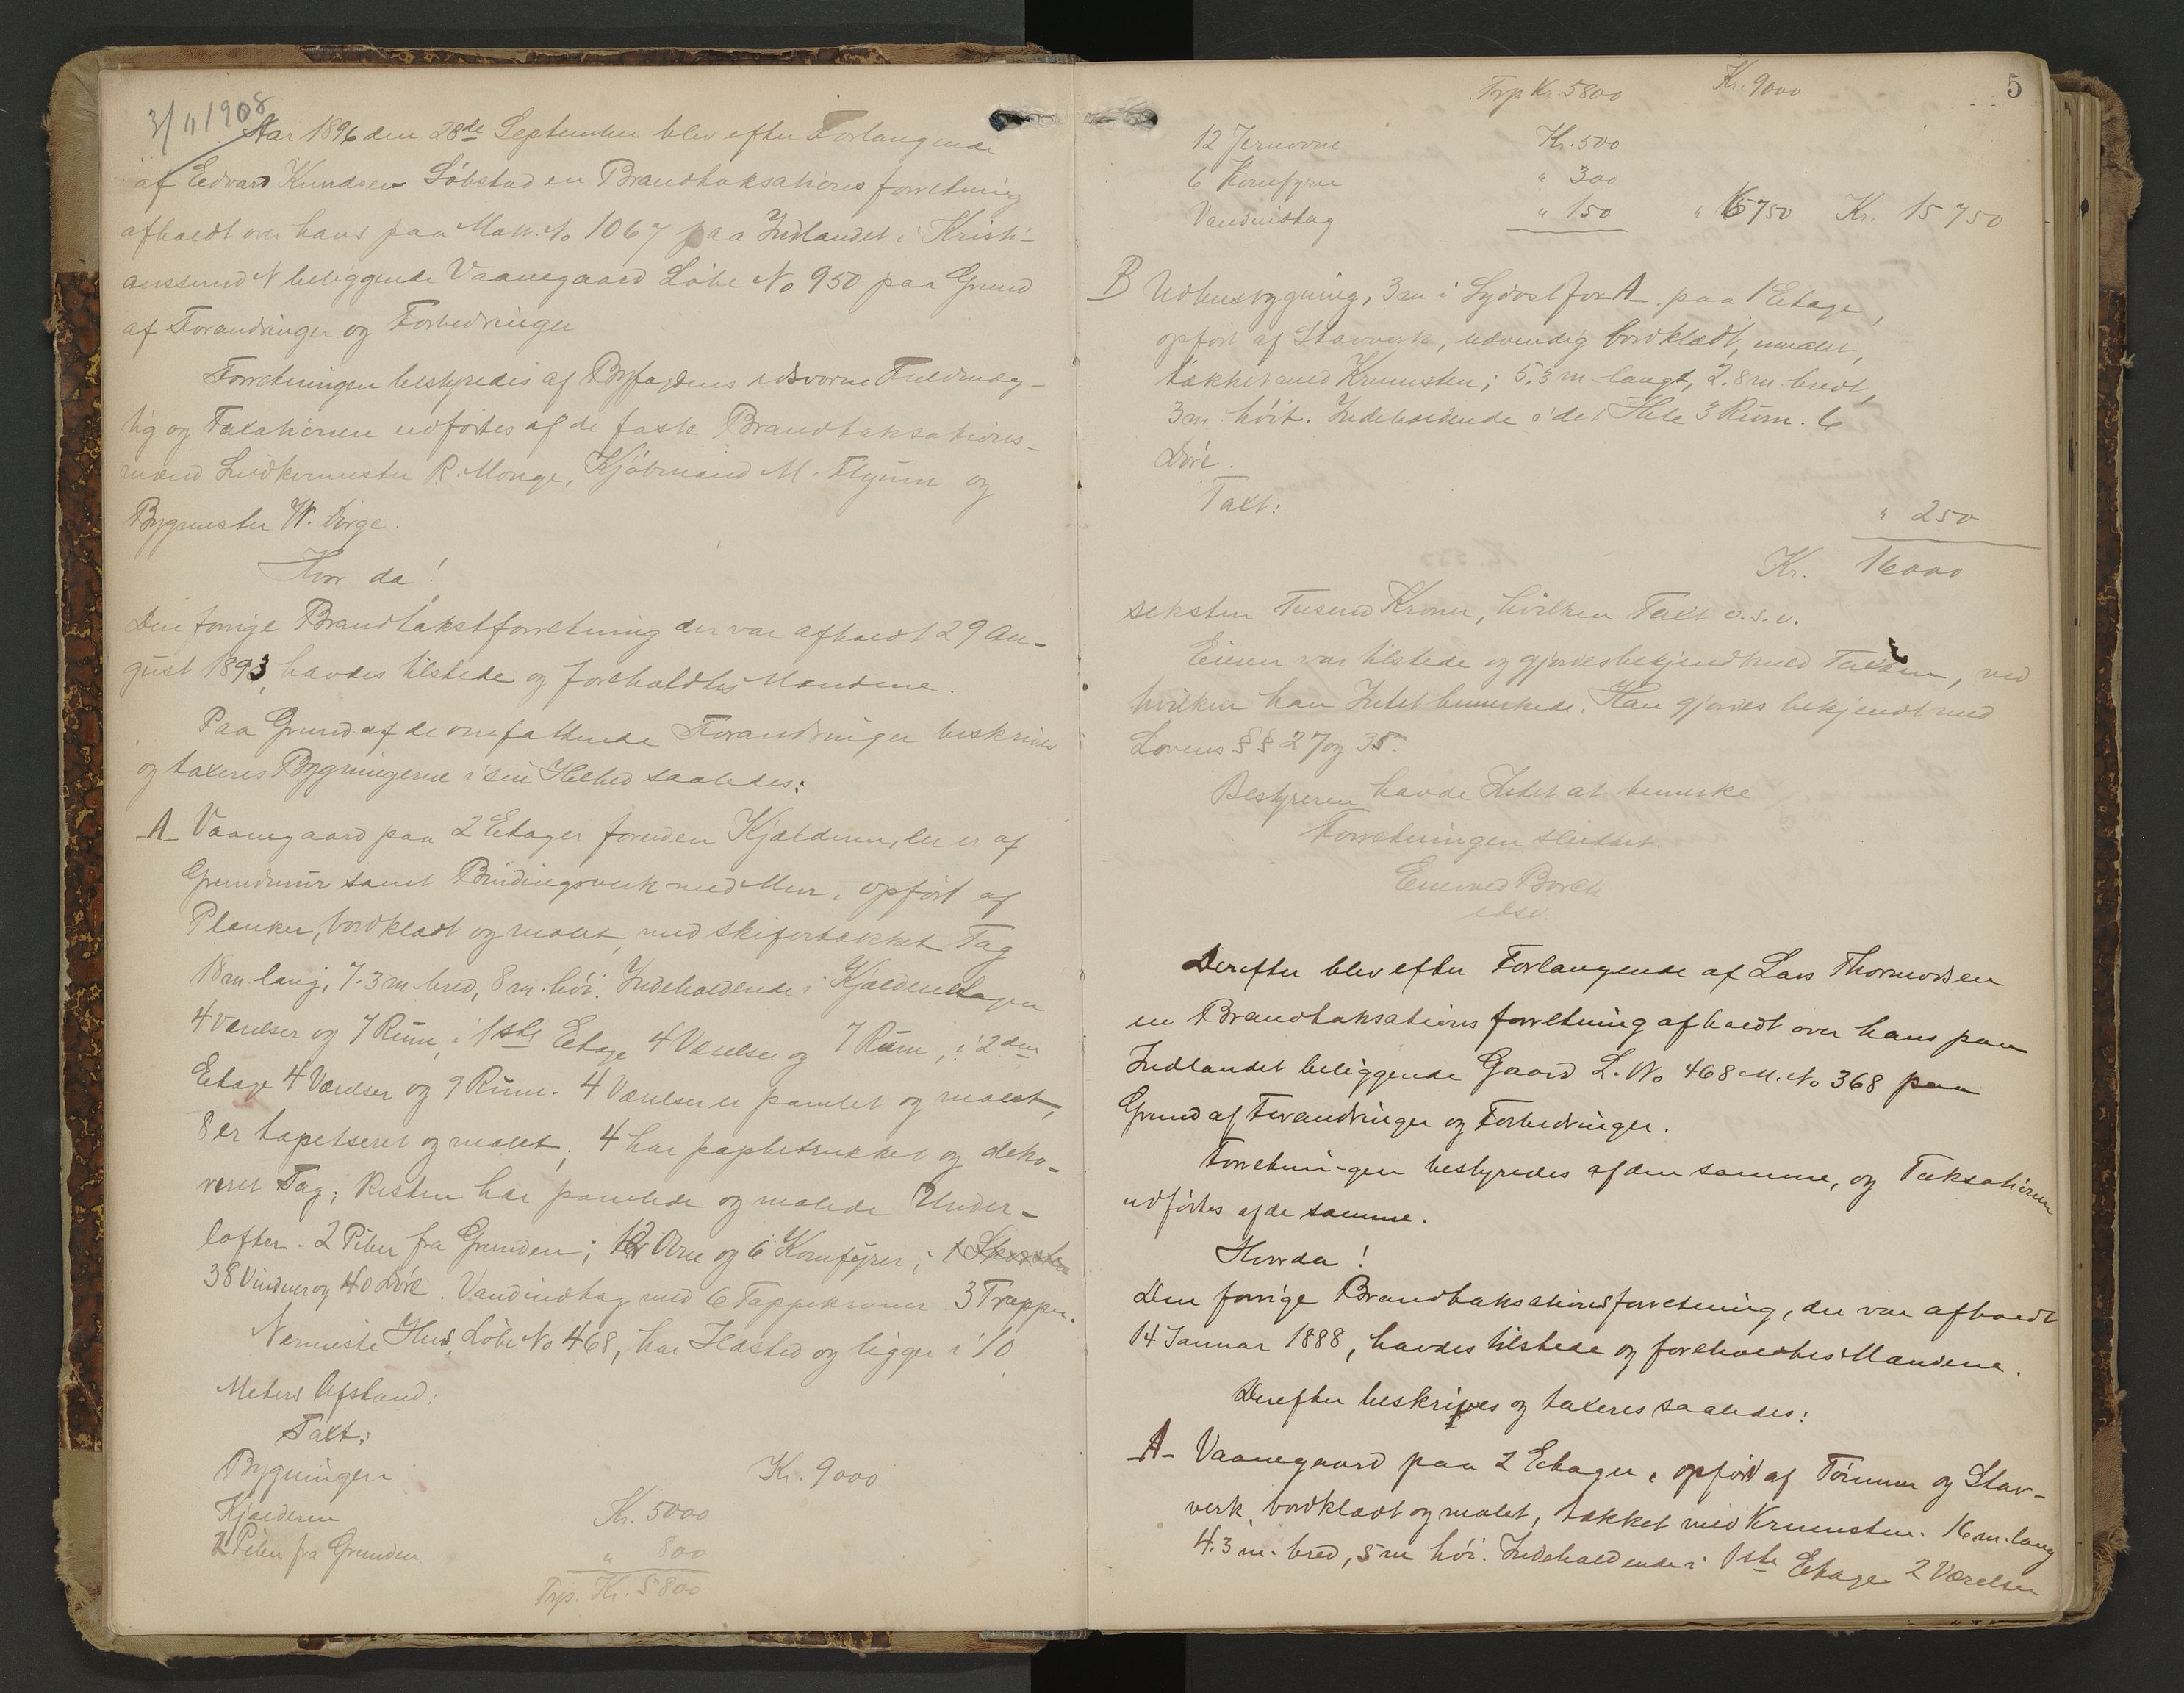 3/11 1908
Aar 1896 den 28de September blev efter Forlangende
af Edvard Knudsen Löbstad en Brandtaksations forretning
afholdt over hans paa Matr. No 1067 paa Indlandet i Kristi-
anssund N beliggende Vaanegaard Löbe No 950 paa Grund
af Forandringer og Forbedringer
Forretningen bestyredes af Byfogdens edsvorne Fuldmæg-
tig og Taxationen udförtes af de faste Brandtaksations-
mænd R. Monge, Kjöbmand M. Flygum og
Bygmester W. Dorge.
Hvor da!
Den forrige Brandtakstforretning der var afholdt 29 Au-
gust 1893, havdes tilstede og foreholdtes Mændene.
Paa Grund af de omfattende Forandringer beskrives
og taxeres Bygningerne i sin Helhed saaledes:
A Vaanegaard paa 2 Etager foruden Kjælderen, der er af
Grundmur samt Bindingsverk med Mur, opfört af
Planker, bordklædt og malet, med skifertækket Tag
18 m. lang, 7.3 m. bred, 8 m. höi. Indeholdende i Kjælderetagen
4 Værelser og 7 Rum, i 1ste Etage 4 Værelser og 7 Rum, i 2den
Etage 4 Værelser og 9 Rum. 4 Værelser er panelet og malet,
8 er tapetseret og malet; 4 har papbetrukket og deko-
reret Tag; Resten har panelede og malede Under-
lofter. 2 Piber fra Grunden; 12 Ovne og 6 Komfyrer; 1
38 Vinduer og 40 Döre. Vandindtag med 6 Tappekraner. 3 Trapper.
Nærmeste Hus, Löbe No 468, har Ildsted og ligger i 10
Meters Afstand:
Taxt:
Bygningen Kr. 9000
Kjælderen Kr. 5000
2 Piber fra Grunden " 800
Trp. Kr. 5800
5
Trp Kr. 5800 Kr. 9000
12 Jernovne Kr. 500
6 Komfyrer " 300
Vandindtag " 150 " 6750 Kr. 15 750
B Udhusbygning, 3 m i Sydost for A. paa 1 Etage,
opfört af Stavverk, udvendig bordklædt, umalet,
tækket med Krumsten; 5.3 m langt, 2.8 m. bredt,
3 m. höit. Indeholdende i det Hele 3 Rum. 6
Döre.
Taxt: " 250
Kr. 16000
seksten Tusend Kroner, hvilken Taxt o.s.v.
Eieren var tilstede og gjordes bekjendt med Taxten, ved
hvilken han Intet bemerkede. Han gjordes bekjendt med
Lovens §§ 27 og 35.
Bestyreren havde Intet at bemerke
Forretningen sluttet.
Borch
edsv.
Derefter blev efter Forlangende af Lars Thormodsen
en Brandtaksations forretning afholdt over hans paa
Indlandet beliggende Gaard L. No 468 M. No 368 paa
Grund af Forandringer og Forbedringer.
Forretningen bestyredes af den samme, og Taksationen
udförtes af de samme.
Hvorda!
Den forrige Brandtaksationsforretning, der var afholdt
14 Januar 1888, havdes tilstede og foreholdtes Mændene.
Derefter beskrives og taxeres saaledes:
A- Vaanegaard paa 2 Etager, opfört af Tömmer og Stav-
verk, bordklædt og malet, tækket med Krumsten. 16 m. lang
4.3 m. bred, 5 m höi. Indeholdende i 1ste Etage 2 Værelser